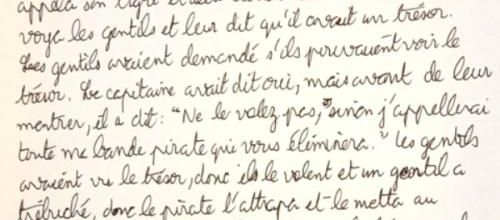 appela son tigre et
voya les gentils et leur dit qu'il avait un trésor.
Les gentils avaient demandé s'ils pouvaient voir le
trésor. Le capitaine avait dit oui, mais avant de leur
montrer, il a dit : "Ne le volez pas, sinon j'appellerai
toute ma bande pirate qui vous éliminera." Les gentils
avaient vu le trésor, donc ils le volent et un gentil a
trébuché, donc le pirate l'attrapa et le metta au